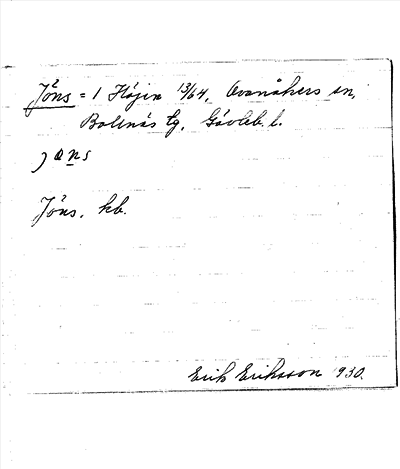 Jöns = 1 Höjen 13/64, Ovanåkers sn,
Bollnäs tg, Gävleb. l.
jöns
Jöns. kb.
Erik Eriksson 1930.